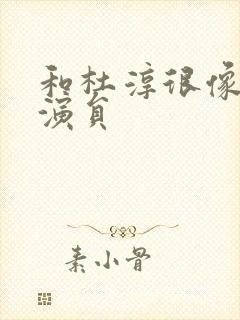 和杜淳很像
演员
素小骨